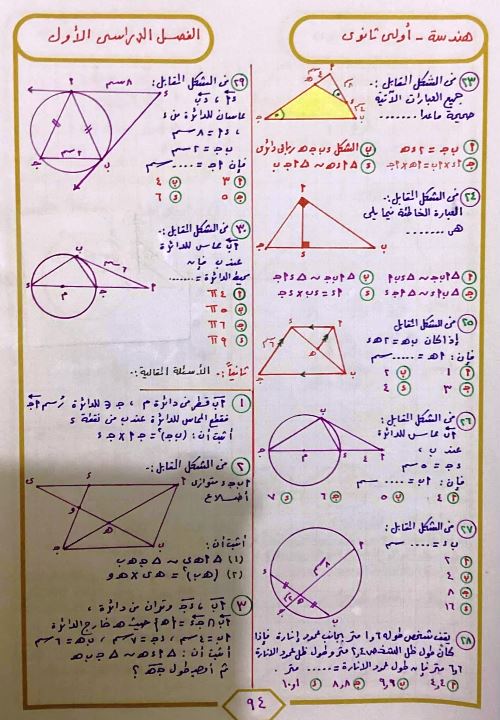 هندسة - أولى ثانوى
الفصل الدراسى الأول
٢٣ فى الشكل المقابل :-
جميع العبارات الآتية
صحيحة ماعدا .......
أ ب جـ = ٢ s هـ
ب الشكل s ب جـ هـ رباعى دائرى
٢٤ فى الشكل المقابل :-
العبارة الخاطئة فيما يلى
هى .......
٢٥ فى الشكل المقابل
إذا كان ب هـ = ٢ هـ s
فإن : أ هـ = ..... سم
أ ١ ب ٢
جـ ٣ s ٤
٢٦ فى الشكل المقابل :-
أ ب مماس للدائرة
عند ب ،
s جـ = ٥ سم
فإن : أ ب = ..... سم
أ ٤ ب ٥ جـ ٦ s ٧
٢٧ فى الشكل المقابل :-
ب s = ..... سم
أ ٢
ب ٤
جـ ٨
s ١٦
٢٨ يقف شخص طوله ١,٦ متر بجانب عمود إنارة فإذا
كان طول ظل الشخص ٢,٤ متر وطول ظل عمود الانارة
٦,٦ متر فإن طول عمود الانارة = ..... متر .
أ ٤,٤ ب ٩,٩ جـ ٨,٨ s ١٠,١
٢٩ فى الشكل المقابل :
مماسان للدائرة من s
، s أ = ٨ سم
ب جـ = ٢ سم
فإن أ جـ = ..... سم
أ ٣ ب ٤
جـ ٥ s ٦
٣٠ فى الشكل المقابل :
أ ب مماس للدائرة
عند ب فإن
محيط الدائرة = .....
أ ٤ π
ب ٥ π
جـ ٦ π
s ٩ π
ثانياً :- الأسئلة المقالية :-
١ أ ب قطر فى دائرة م ، جـ ∈ للدائرة رُسم أ جـ
فقطع المماس للدائرة عند ب فى نقطة s
أثبت أن : (ب جـ)² = جـ أ × جـ s
٢ فى الشكل المقابل :-
أ ب جـ s متوازى
أضلاع
أثبت أن :
٣ أ ب ، s جـ وتران فى دائرة ،
أ ب ∩ s جـ = {هـ} حيث هـ خارج الدائرة
أ ب = ٤ سم ، s جـ = ٧ سم ، ب هـ = ٦ سم
أثبت أن : Δ أ s هـ ~ Δ جـ ب هـ
ثم أوجد طول جـ هـ ؟
٩٤